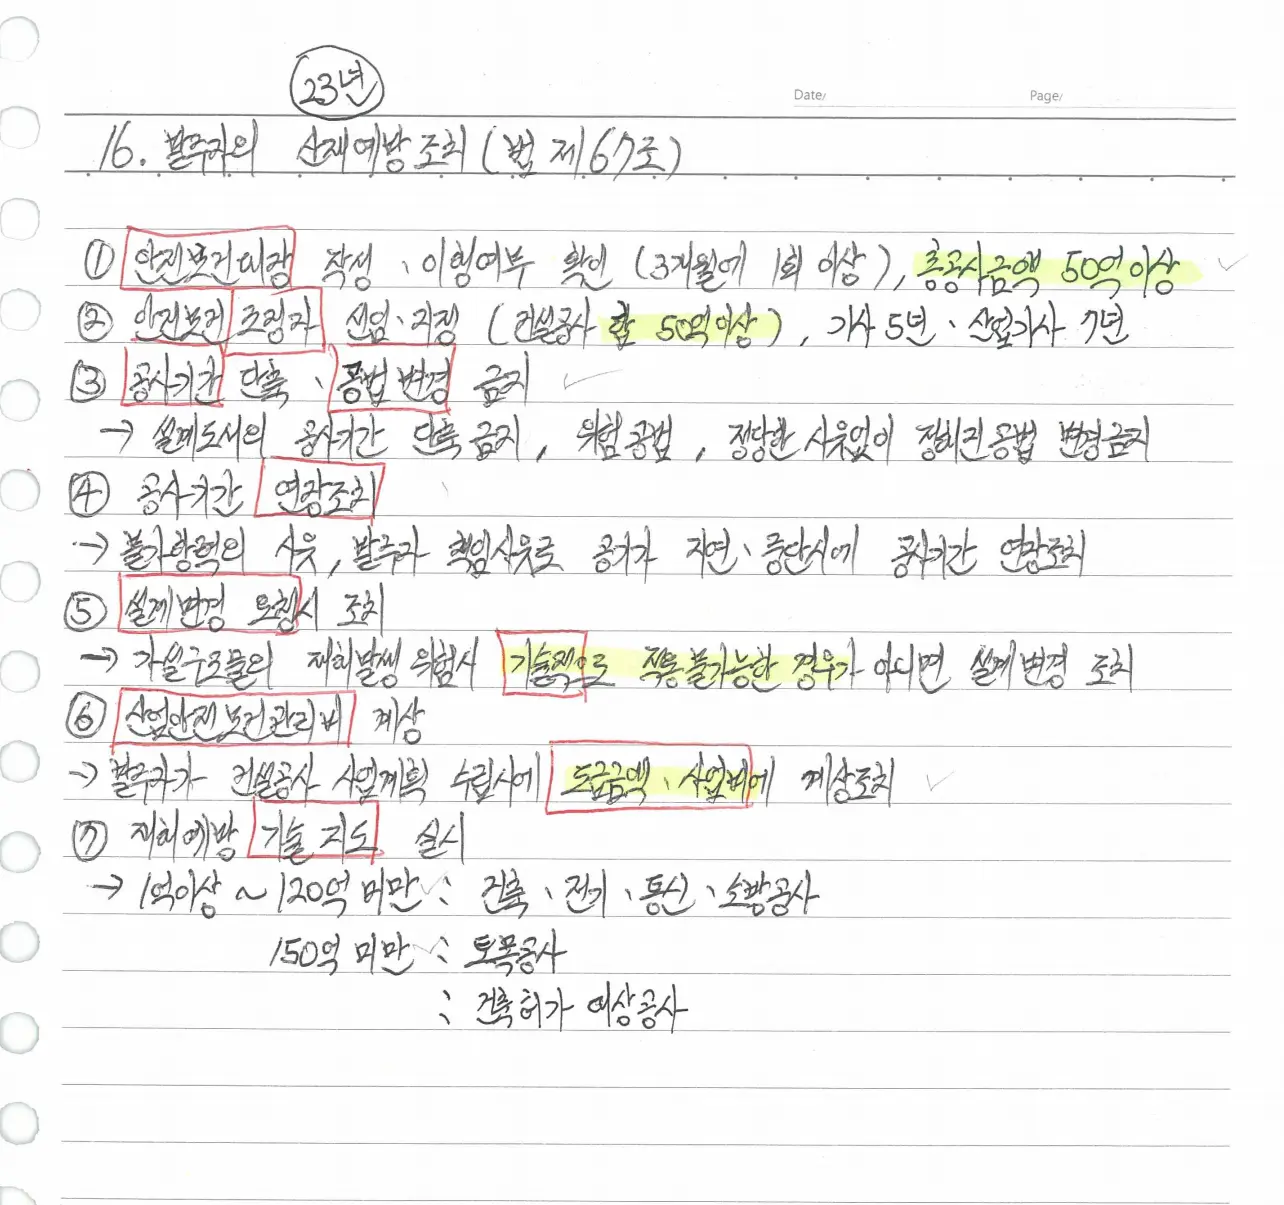 23년
Date/ Page/
16. 발주자의 산재예방조치 (법 제67조)
① 안전보건대장 작성、이행여부 확인 (3개월에 1회 이상), 총공사금액 50억이상
② 안전보건 조정자 선임、지정 (건설공사 합 50억이상), 기사 5년、산업기사 7년
③ 공사기간 단축、공법변경 금지
→ 설계도서의 공사기간 단축금지, 위험공법, 정당한 사유없이 정해진공법 변경금지
④ 공사기간 연장조치
→ 불가항력의 사유, 발주자 책임사유로 공기가 지연、중단시에 공사기간 연장조치
⑤ 설계변경 요청시 조치
→ 가설구조물의 재해발생 위험시 기술적으로 적용불가능한 경우가 아니면 설계변경 조치
⑥ 산업안전보건관리비 계상
→ 발주자가 건설공사 사업계획 수립시에 도급금액、사업비에 계상조치
⑦ 재해예방 기술지도 실시
→ 1억이상 ~ 120억 미만 : 건축、전기、통신、소방공사
150억 미만 : 토목공사
: 건축허가 대상공사